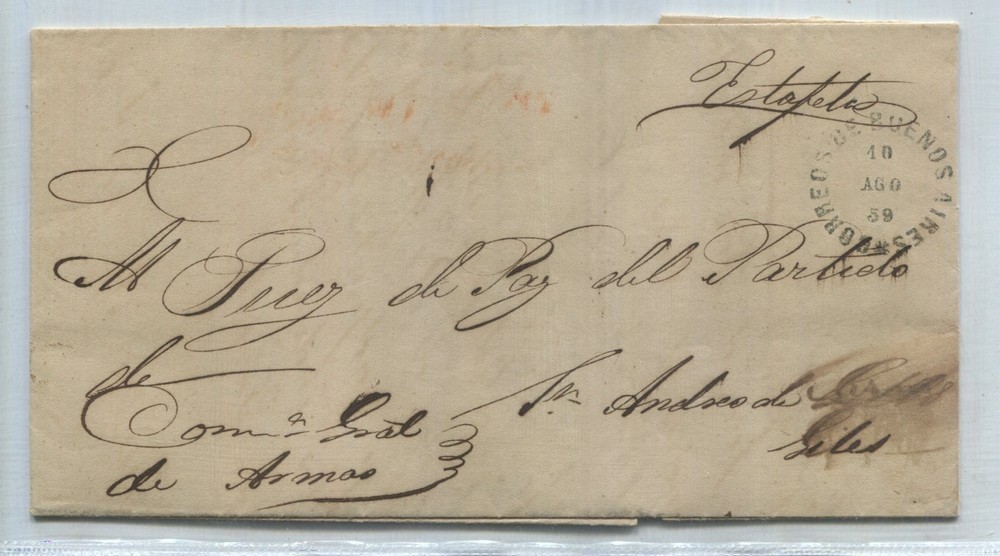 Estafeta
CORREOS DE BUENOS AIRES
10
AGO
59
Al Juez de Paz del Partido
de
Sn. Andres de
Giles
Comn. Gral
de Armas